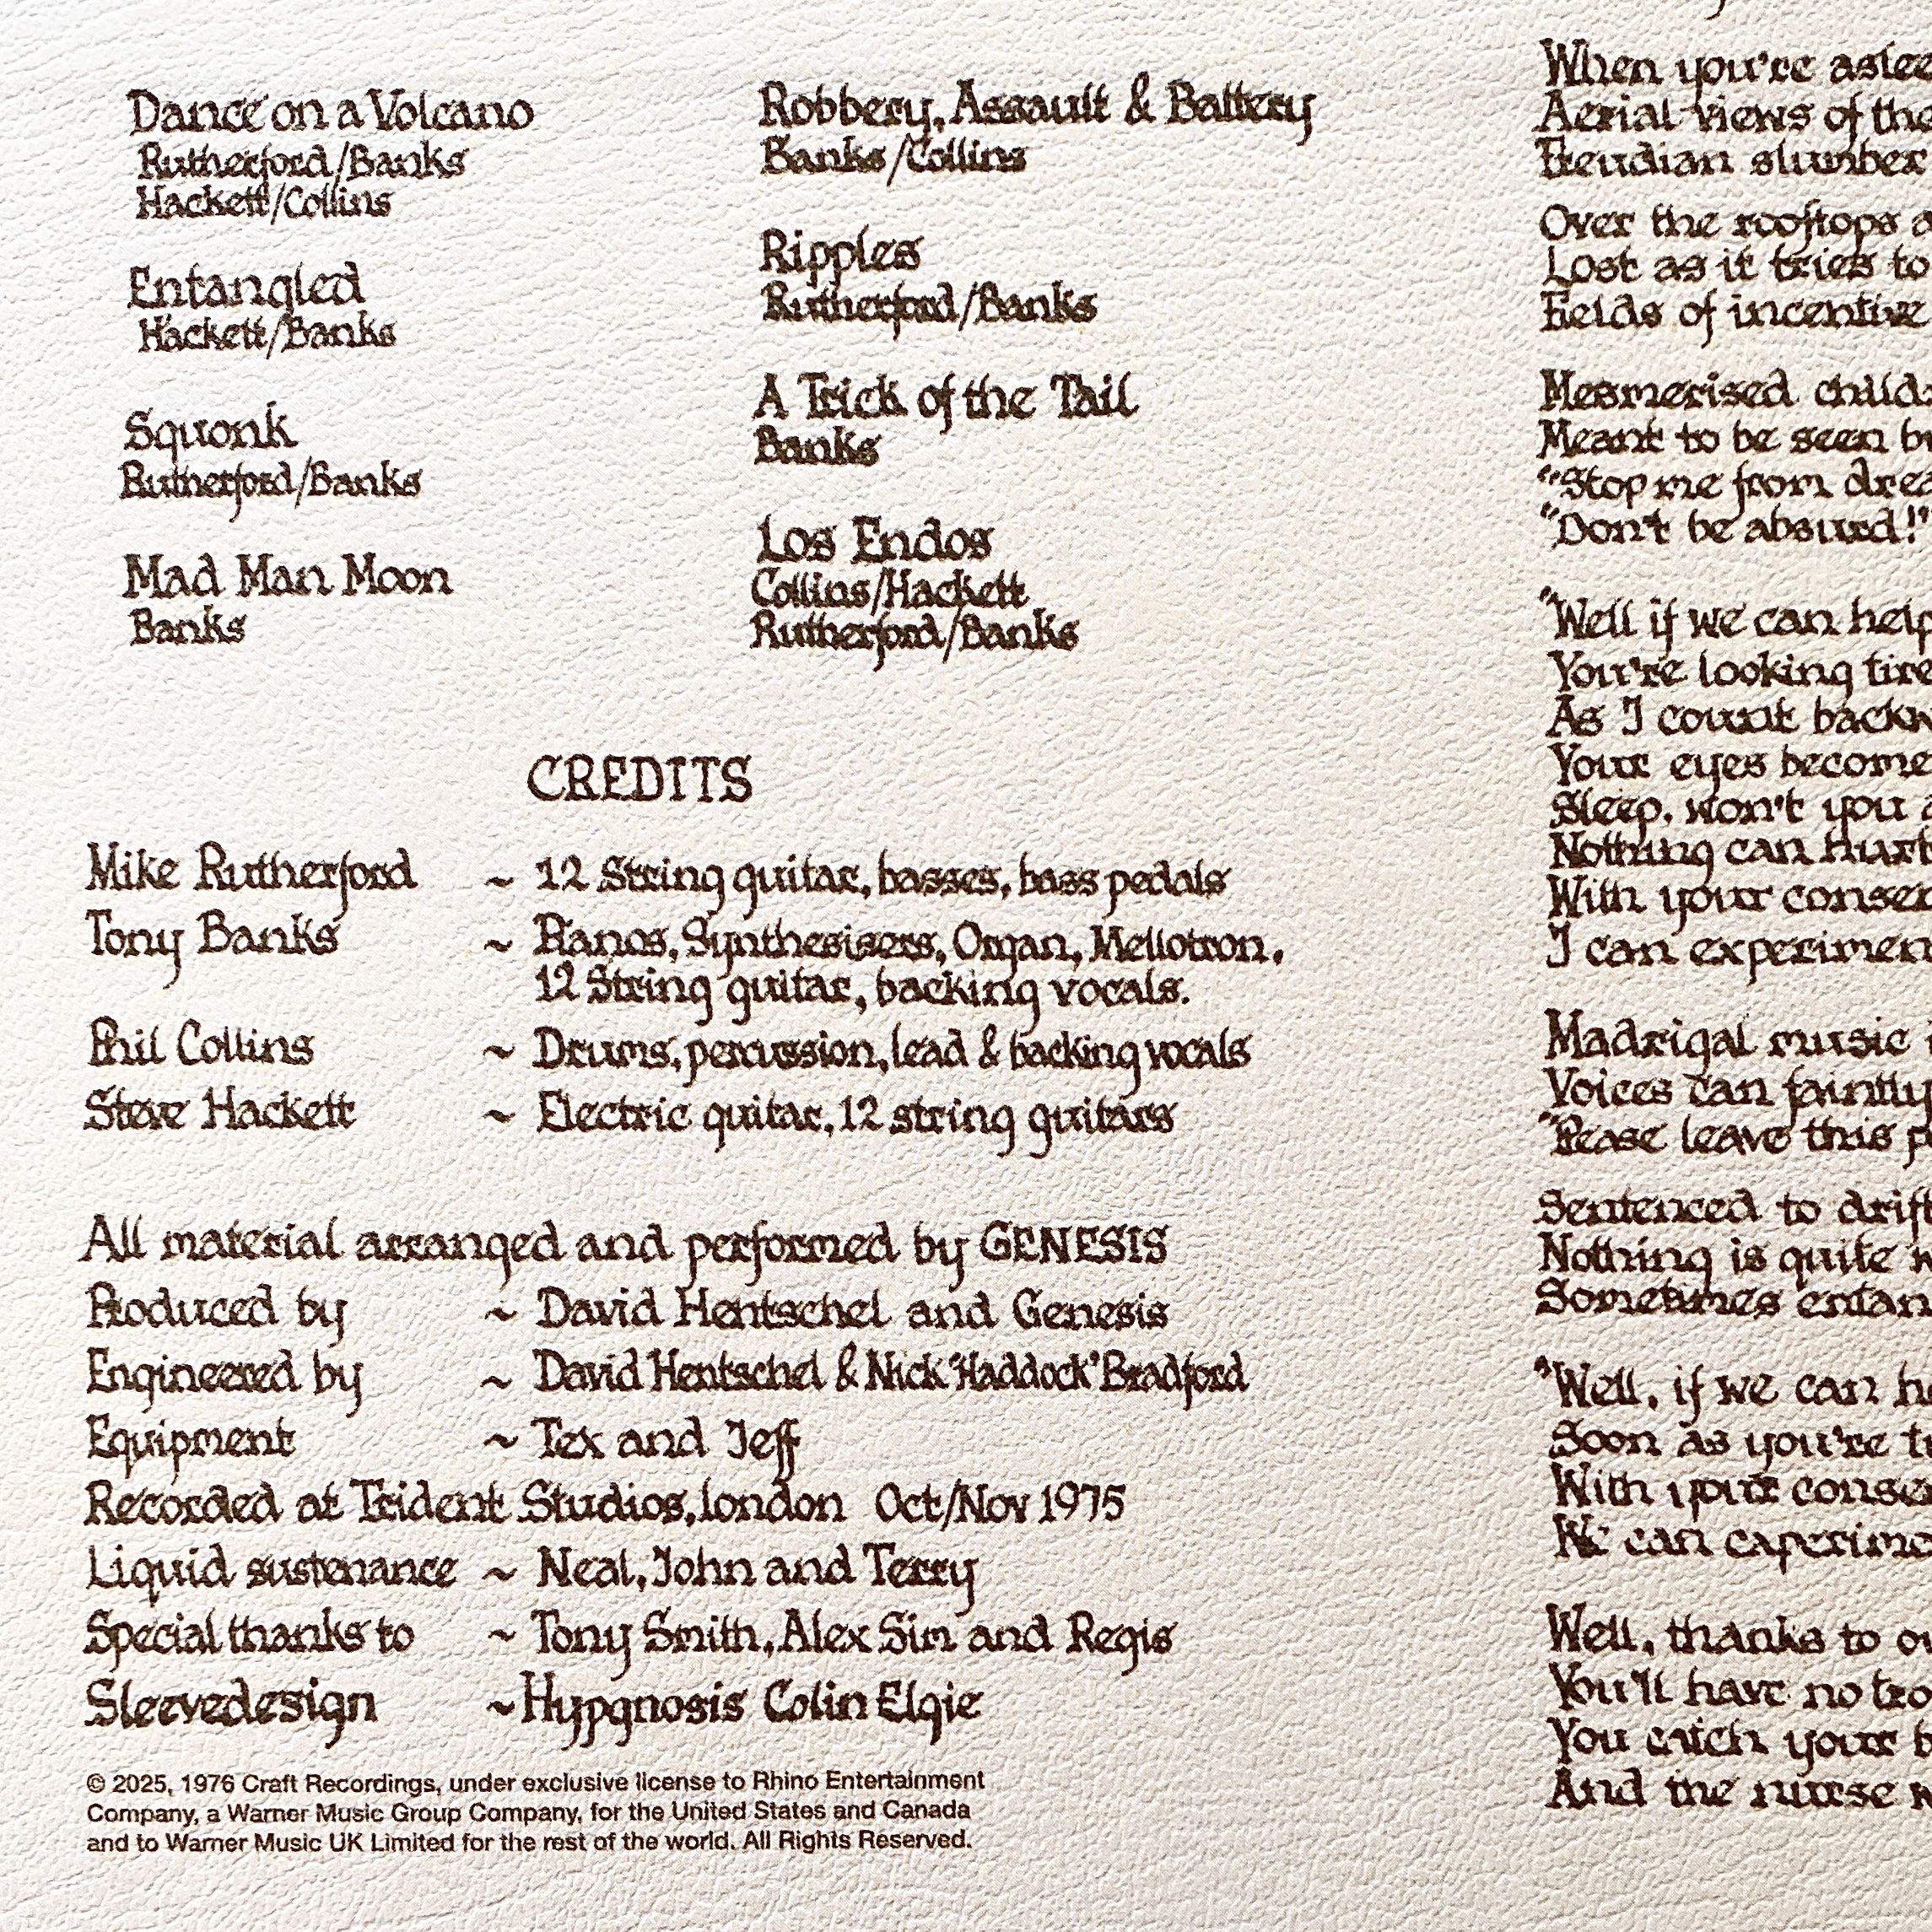 Dance on a Volcano
Rutherford/Banks
Hackett/Collins
Entangled
Hackett/Banks
Squonk
Rutherford/Banks
Mad Man Moon
Banks
Robbery, Assault & Battery
Banks/Collins
Ripples
Rutherford/Banks
A Trick of the Tail
Banks
Los Endos
Collins/Hackett
Rutherford/Banks
CREDITS
Mike Rutherford ~ 12 String guitar, basses, bass pedals
Tony Banks ~ Pianos, Synthesisers, Organ, Mellotron,
12 String guitar, backing vocals.
Phil Collins ~ Drums, percussion, lead & backing vocals
Steve Hackett ~ Electric guitar, 12 string guitars
All material arranged and performed by GENESIS
Produced by ~ David Hentschel and Genesis
Engineered by ~ David Hentschel & Nick 'Haddock' Bradford
Equipment ~ Tex and Jeff
Recorded at Trident Studios, london Oct/Nov 1975
Liquid sustenance ~ Neal, John and Terry
Special thanks to ~ Tony Smith, Alex Sim and Regis
Sleevedesign ~ Hypgnosis Colin Elgie
© 2025, 1976 Craft Recordings, under exclusive license to Rhino Entertainment
Company, a Warner Music Group Company, for the United States and Canada
and to Warner Music UK Limited for the rest of the world. All Rights Reserved.
When you're aslee
Aerial views of the
Freudian slumber
Over the rooftops a
Lost as it tries to
Fields of incentive
Mesmerised child
Meant to be seen b
"Stop me from drea
"Don't be absurd!"
"Well if we can help
You're looking tire
As I count backw
Your eyes become
Sleep, won't you a
Nothing can hurt
With your consen
I can experimen
Madrigal music
Voices can faintly
"Please leave this p
Sentenced to drift
Nothing is quite w
Sometimes entan
"Well, if we can he
Soon as you're t
With your conse
We can experime
Well, thanks to ou
You'll have no tro
You catch your b
And the nurse w